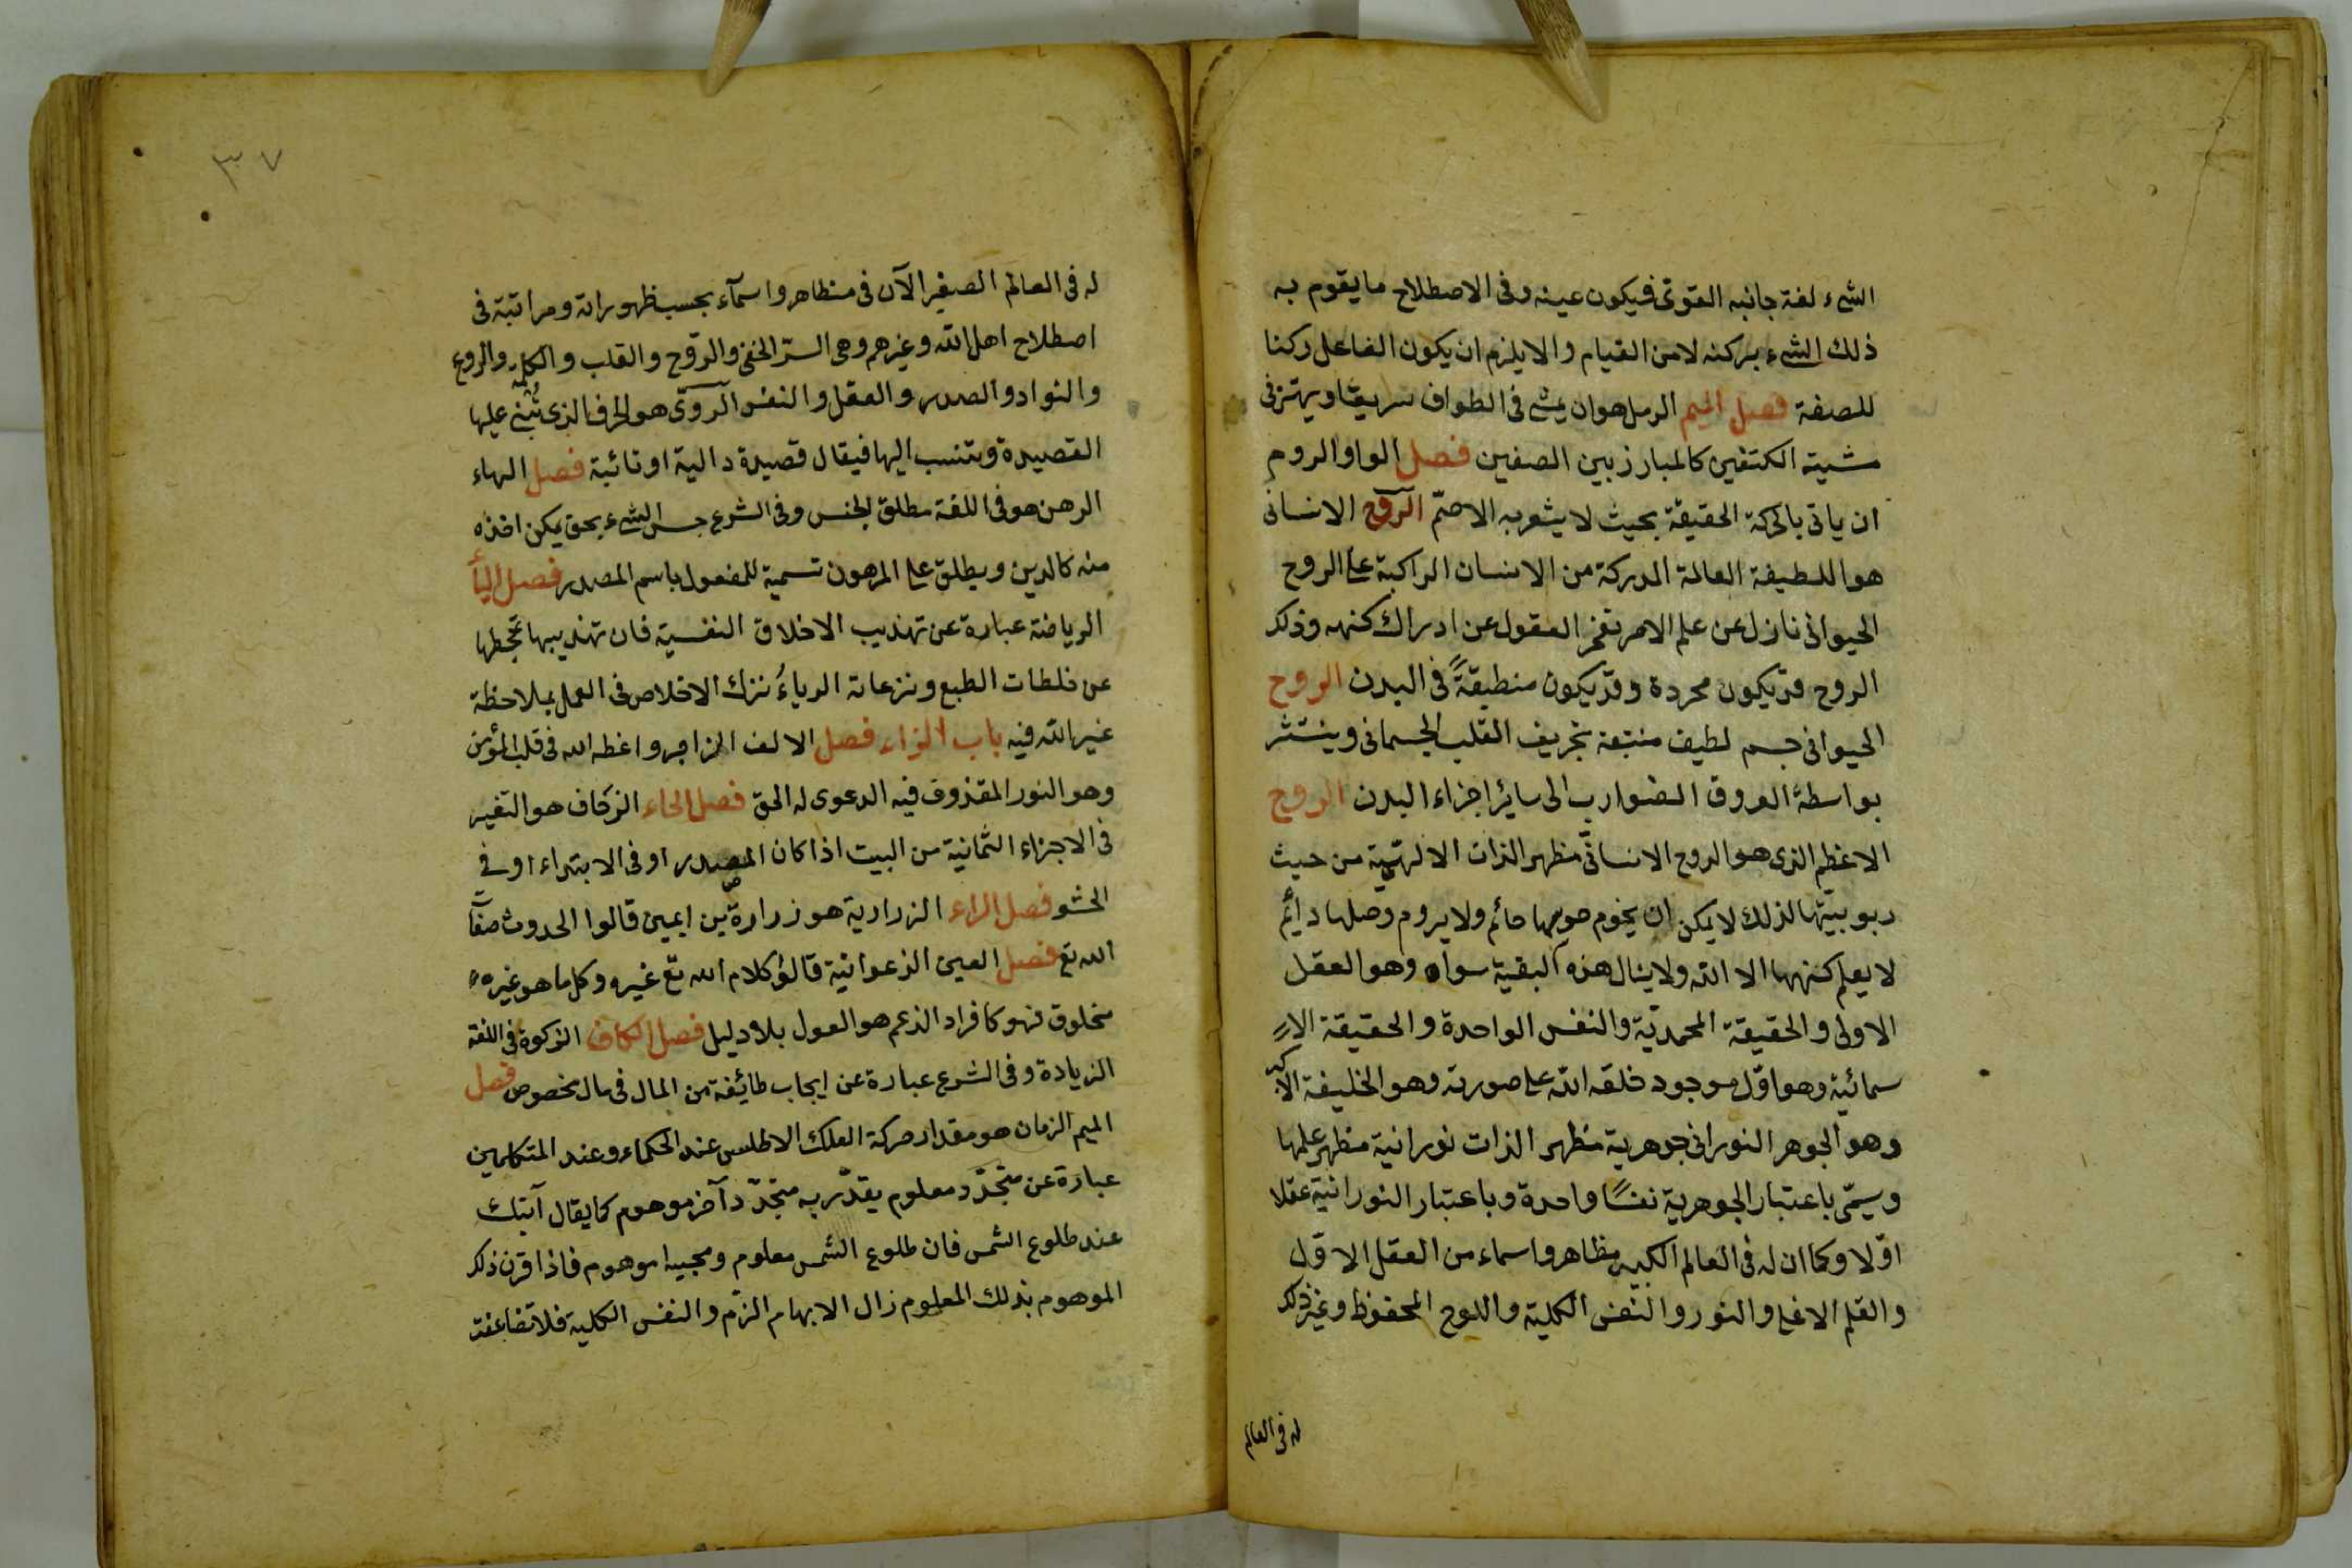 الشئ لغة جانبه القوى فيكون عينه وفى الاصطلاح ما يقوم به
ذلك الشئ بركنه لا من القيام والا يلزم ان يكون الفاعل ركنا
للصفة فصل الميم الرمل هو ان يمشى فى الطواف سريعا ويهتز فى
مشيته الكتفين كالمبارز بين الصفين فصل الواو الروم
ان ياتى بالحركة الحقيقة بحيث لا يشعر به الاصمّ الروح الانسانى
هو اللطيفة العالمة المدركة من الانسان الراكبة على الروح
الحيوانى نازل عن علم الامر تعجز العقول عن ادراك كنهه وذلك
الروح قد يكون مجردة وقد يكون منطبقةً فى البدن الروح
الحيوانى جسم لطيف منبعه تجويف القلب الجسمانى وينتشر
بواسطة العروق الضوارب الى ساير اجزاء البدن الروح
الاعظم الذى هو الروح الانسانىّ مظهر الذات الالهية من حيث
ربوبيتها لذلك لا يمكن ان يحوم حولها حائم ولا يروم وصلها دائم
لا يعلم كنهها الا الله ولا ينال هذه البقية سواه وهو العقل
الاولى والحقيقة المحمديّة والنفس الواحدة والحقيقة الا
سمائية وهو اوّل موجود خلقه الله على صورته وهو الخليفة الاكبر
وهو الجوهر النورانى جوهرية مظهر الذات نورانية مظهر علمها
ويسمّى باعتبار الجوهرية نفسًا واحدة وباعتبار النورانية عقلا
اوّلا وكما ان له فى العالم الكبير مظاهر واسماء من العقل الاوّل
والقلم الاعلى والنور والنفس الكلية واللوح المحفوظ وغير ذلك
له فى العالم
٣٧
له فى العالم الصغير الآن فى مظاهر واسمآء بحسب ظهوراته ومراتبة فى
اصطلاح اهل الله وغيرهم وهى السرّ الخفى والروّح والقلب والكلمة والروع
والفواد والصدر والعقل والنفس الروىّ هو الحرف الذى تُبنى عليها
القصيدة وتنسب اليها فيقال قصيدة دالية او تائية فصل الهاء
الرهن هو فى اللغة مطلق الحبس وفى الشرع حبس الشئ بحق يمكن اخذه
منه كالدين ويطلق على المرهون تسمية للمفعول باسم المصدر فصل اليأ
الرياضة عبارة عن تهذيب الاخلاق النفسية فان تهذيبها
عن خلطات الطبع ونزعاته الرياءُ ترك الاخلاص فى العمل بملاحظة
غير الله فيه باب الزاء فصل الالف الزاجر واعظ الله فى قلب المؤمن
وهو النور المقذوف فيه الدعوى له الحق فصل الحاء الزحاف هو التغير
فى الاجزاء الثمانية من البيت اذا كان المصدر او فى الابتداء او فى
الحشو فصل الراء الزرارية هو زرارة بن ايمين قالوا الحدوث صفآ
الله تع فصل العين الزعوانية قالوُ كلام الله تع غيره وكل ما هو غيره
مخلوق فهو كافراد الزعم هو العول بلا دليل فصل الكاف الزكوة فى اللغة
الزيادة وفى الشرع عبارة عن ايجاب طائفة من المال فى مال مخصوص فصل
الميم الزمان هو مقدار حركة الفلك الاطلس عند الحكماء وعند المتكلمين
عبارة عن متجدّد معلوم يقدّر به متجدّد آخر موهوم كما يقال آتيك
عند طلوع الشمس فان طلوع الشمس معلوم ومجيئه موهوم فاذا قرن ذلك
الموهوم بذلك المعلوم زال الابهام الزمّرد النفس الكلية فلا تضاعفت